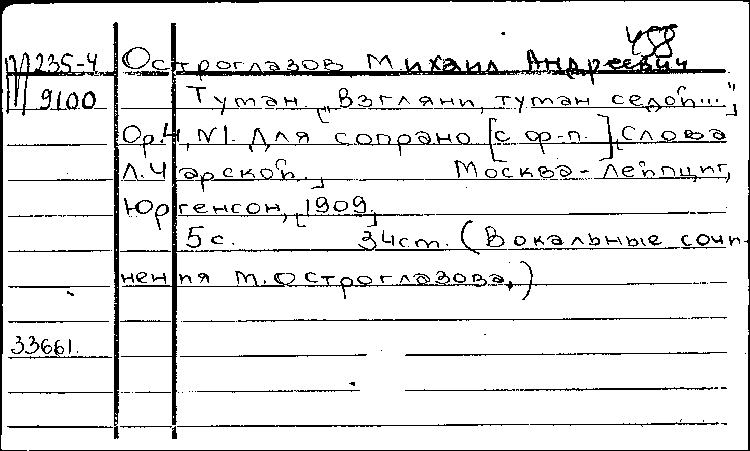 458
М 235-4 Остроглазов Михаил Андреевич
9100 Туман. ["Взгляни, туман седой..."]
Op.4, N1. Для сопрано [с ф-п.], [Слова
Л. Чарской.] Москва-Лейпциг,
Юргенсон, [1909]
5с. 34 cm. (Вокальные сочи-
нения М. Остроглазова.)
33661.